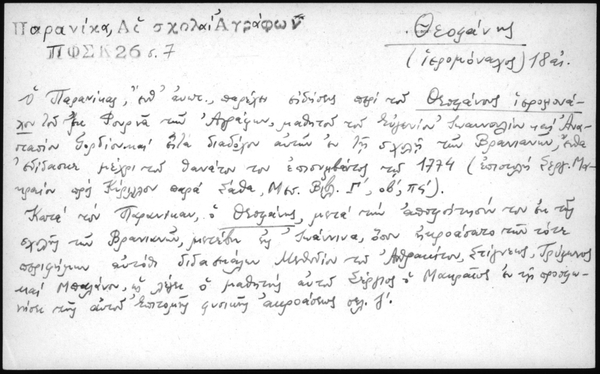 Παρανίκα, Αἱ σχολαὶ Ἀγράφων
ΠΦΣΚ 26 σ. 7
Θεοφάνης
(ἱερομόναχος) 18 αἰ.
Ὁ Παρανίκας, ἔνθ' ἀνωτ., παρέχει εἰδήσεις περὶ τοῦ Θεοφάνους ἱερομονά-
χου τοῦ ἐκ Φουρνᾶ τῶν Ἀγράφων, μαθητοῦ τοῦ Εὐγενίου Ἰωαννουλίου καὶ Ἀνα-
στασίου Γορδίου καὶ εἶτα διαδόχου αὐτῶν ἐν τῇ σχολῇ τῶν Βρανιανῶν, ἔνθα
ἐδίδασκε μέχρι τοῦ θανάτου του ἐπισυμβάντος τῷ 1774 (ἐπιστολὴ Σεργ. Μα-
κραίου πρὸς Κύριλλον παρὰ Σάθα, Μεσ. Βιβλ. Γ', οβ', πς').
Κατὰ τὸν Παρανίκαν, ὁ Θεοφάνης, μετὰ τὴν ἀποφοίτησίν του ἐκ τῆς
σχολῆς τῶν Βρανιανῶν, μετέβη εἰς Ἰωάννινα, ὅπου ἠκροάσατο τῶν τότε
περιφήμων αὐτόθι διδασκάλων Μεθοδίου τοῦ Ἀνθρακίτου, Στίγνεως, Τρύφωνος
καὶ Μπαλάνου, ὡς λέγει ὁ μαθητὴς αὐτοῦ Σέργιος ὁ Μακραῖος ἐν τῇ προσφω-
νήσει τῆς αὐτοῦ Ἐπιτομῆς φυσικῆς ἀκροάσεως σελ. ζ'.